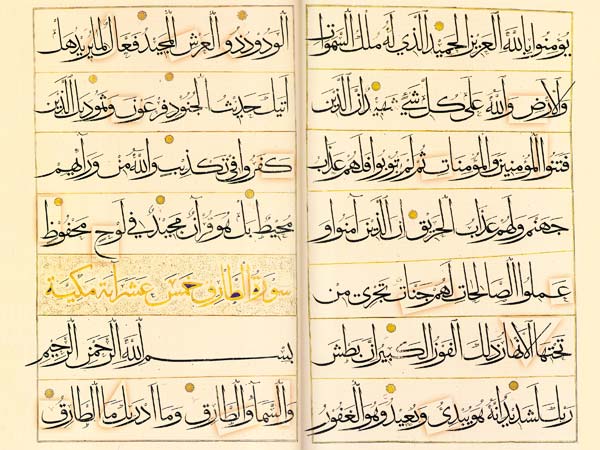 يؤمنوا بالله العزيز الحميد الذي له ملك السموات
والارض والله على كل شيء شهيد ان الذين
فتنوا المؤمنين والمؤمنات ثم لم يتوبوا فلهم عذاب
جهنم ولهم عذاب الحريق ان الذين آمنوا و
عملوا الصالحات لهم جنات تجري من
تحتها الانهار ذلك الفوز الكبير ان بطش
ربك لشديد انه هو يبدئ ويعيد وهو الغفور
الودود ذو العرش المجيد فعال لما يريد هل
اتيك حديث الجنود فرعون وثمود بل الذين
كفروا في تكذيب والله من ورآئهم
محيط بل هو قرآن مجيد في لوح محفوظ
سورة الطارق خمس عشر آية مكية
بسم الله الرحمن الرحيم
والسمآء والطارق وما ادريك ما الطارق